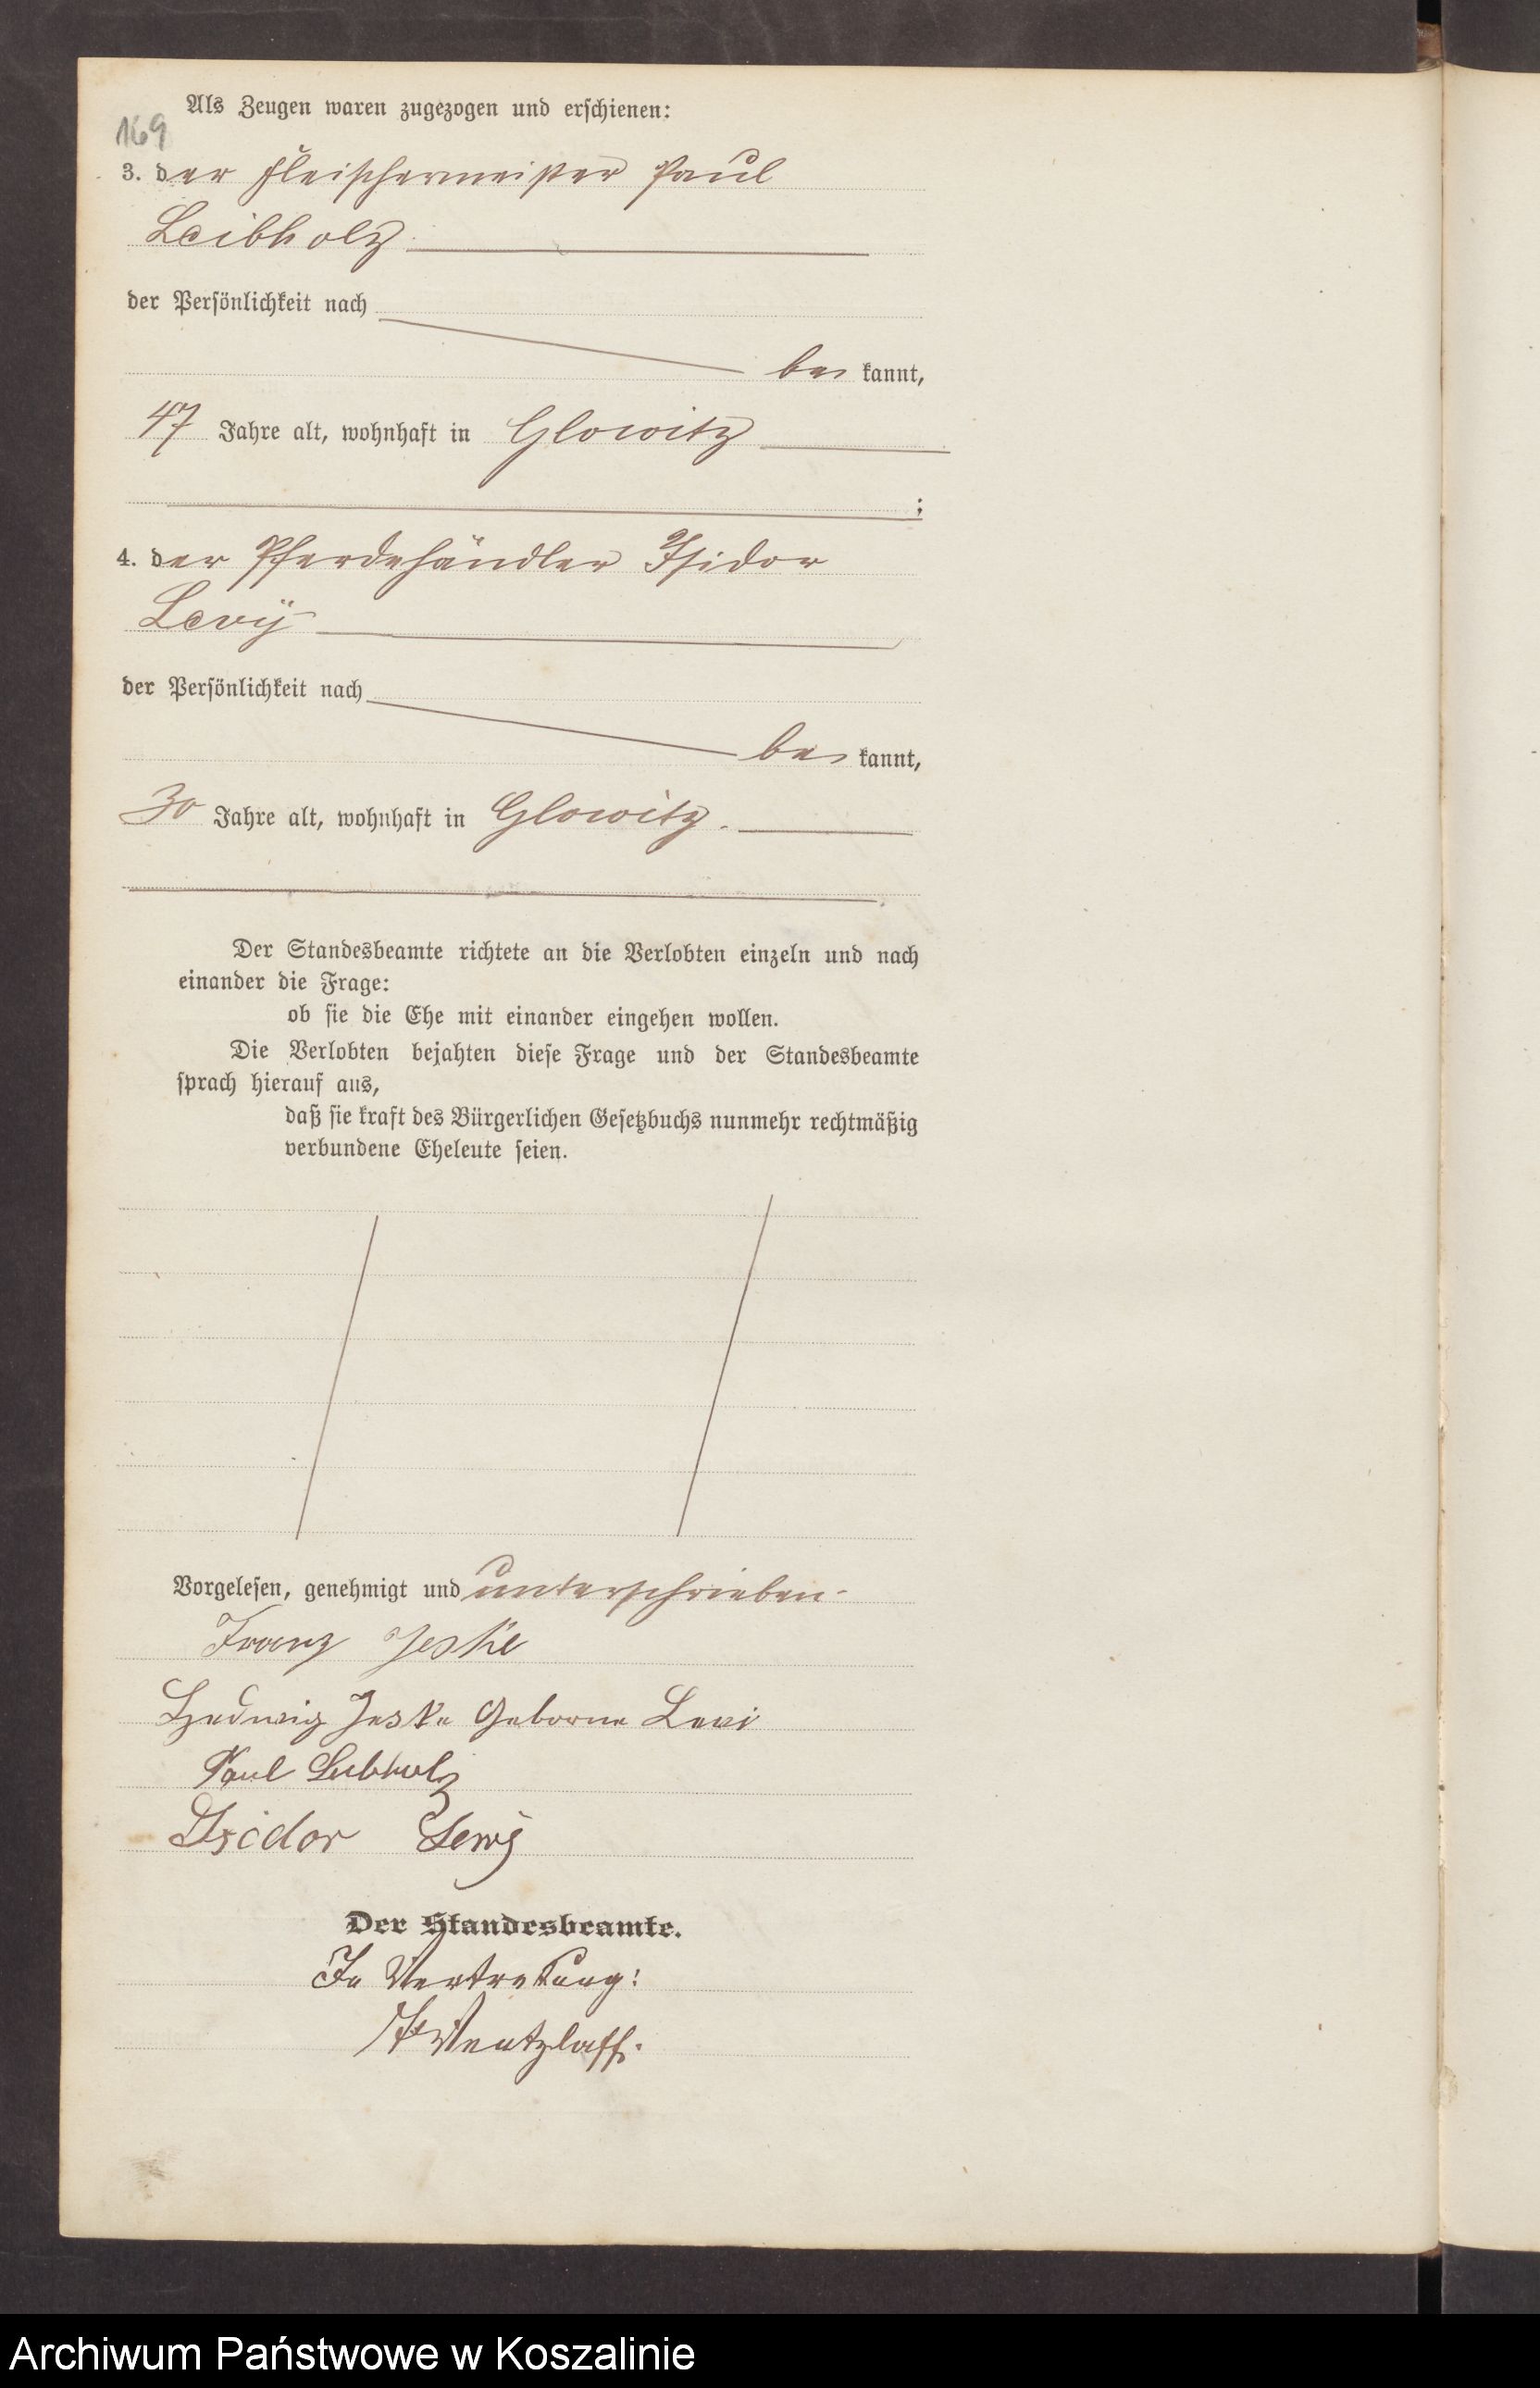 Als Zeugen waren zugezogen und erschienen:
169
3. der Fleischermeister Paul
Leibholz
der Persönlichkeit nach
be kannt,
47 Jahre alt, wohnhaft in Glowitz
;
4. der Pferdehändler Isidor
Levÿ
der Persönlichkeit nach
be kannt,
30 Jahre alt, wohnhaft in Glowitz.
Der Standesbeamte richtete an die Verlobten einzeln und nach
einander die Frage:
ob sie die Ehe mit einander eingehen wollen.
Die Verlobten bejahten diese Frage und der Standesbeamte
sprach hierauf aus,
daß sie kraft des Bürgerlichen Gesetzbuchs nunmehr rechtmäßig
verbundene Eheleute seien.
Vorgelesen, genehmigt und unterschrieben.
Franz Jeske
Hedwig Jeske Geborne Levi
Paul Leibholz
Isidor Lewÿ
Der Standesbeamte.
In Vertretung:
Wentzlaff.
Archiwum Państwowe w Koszalinie